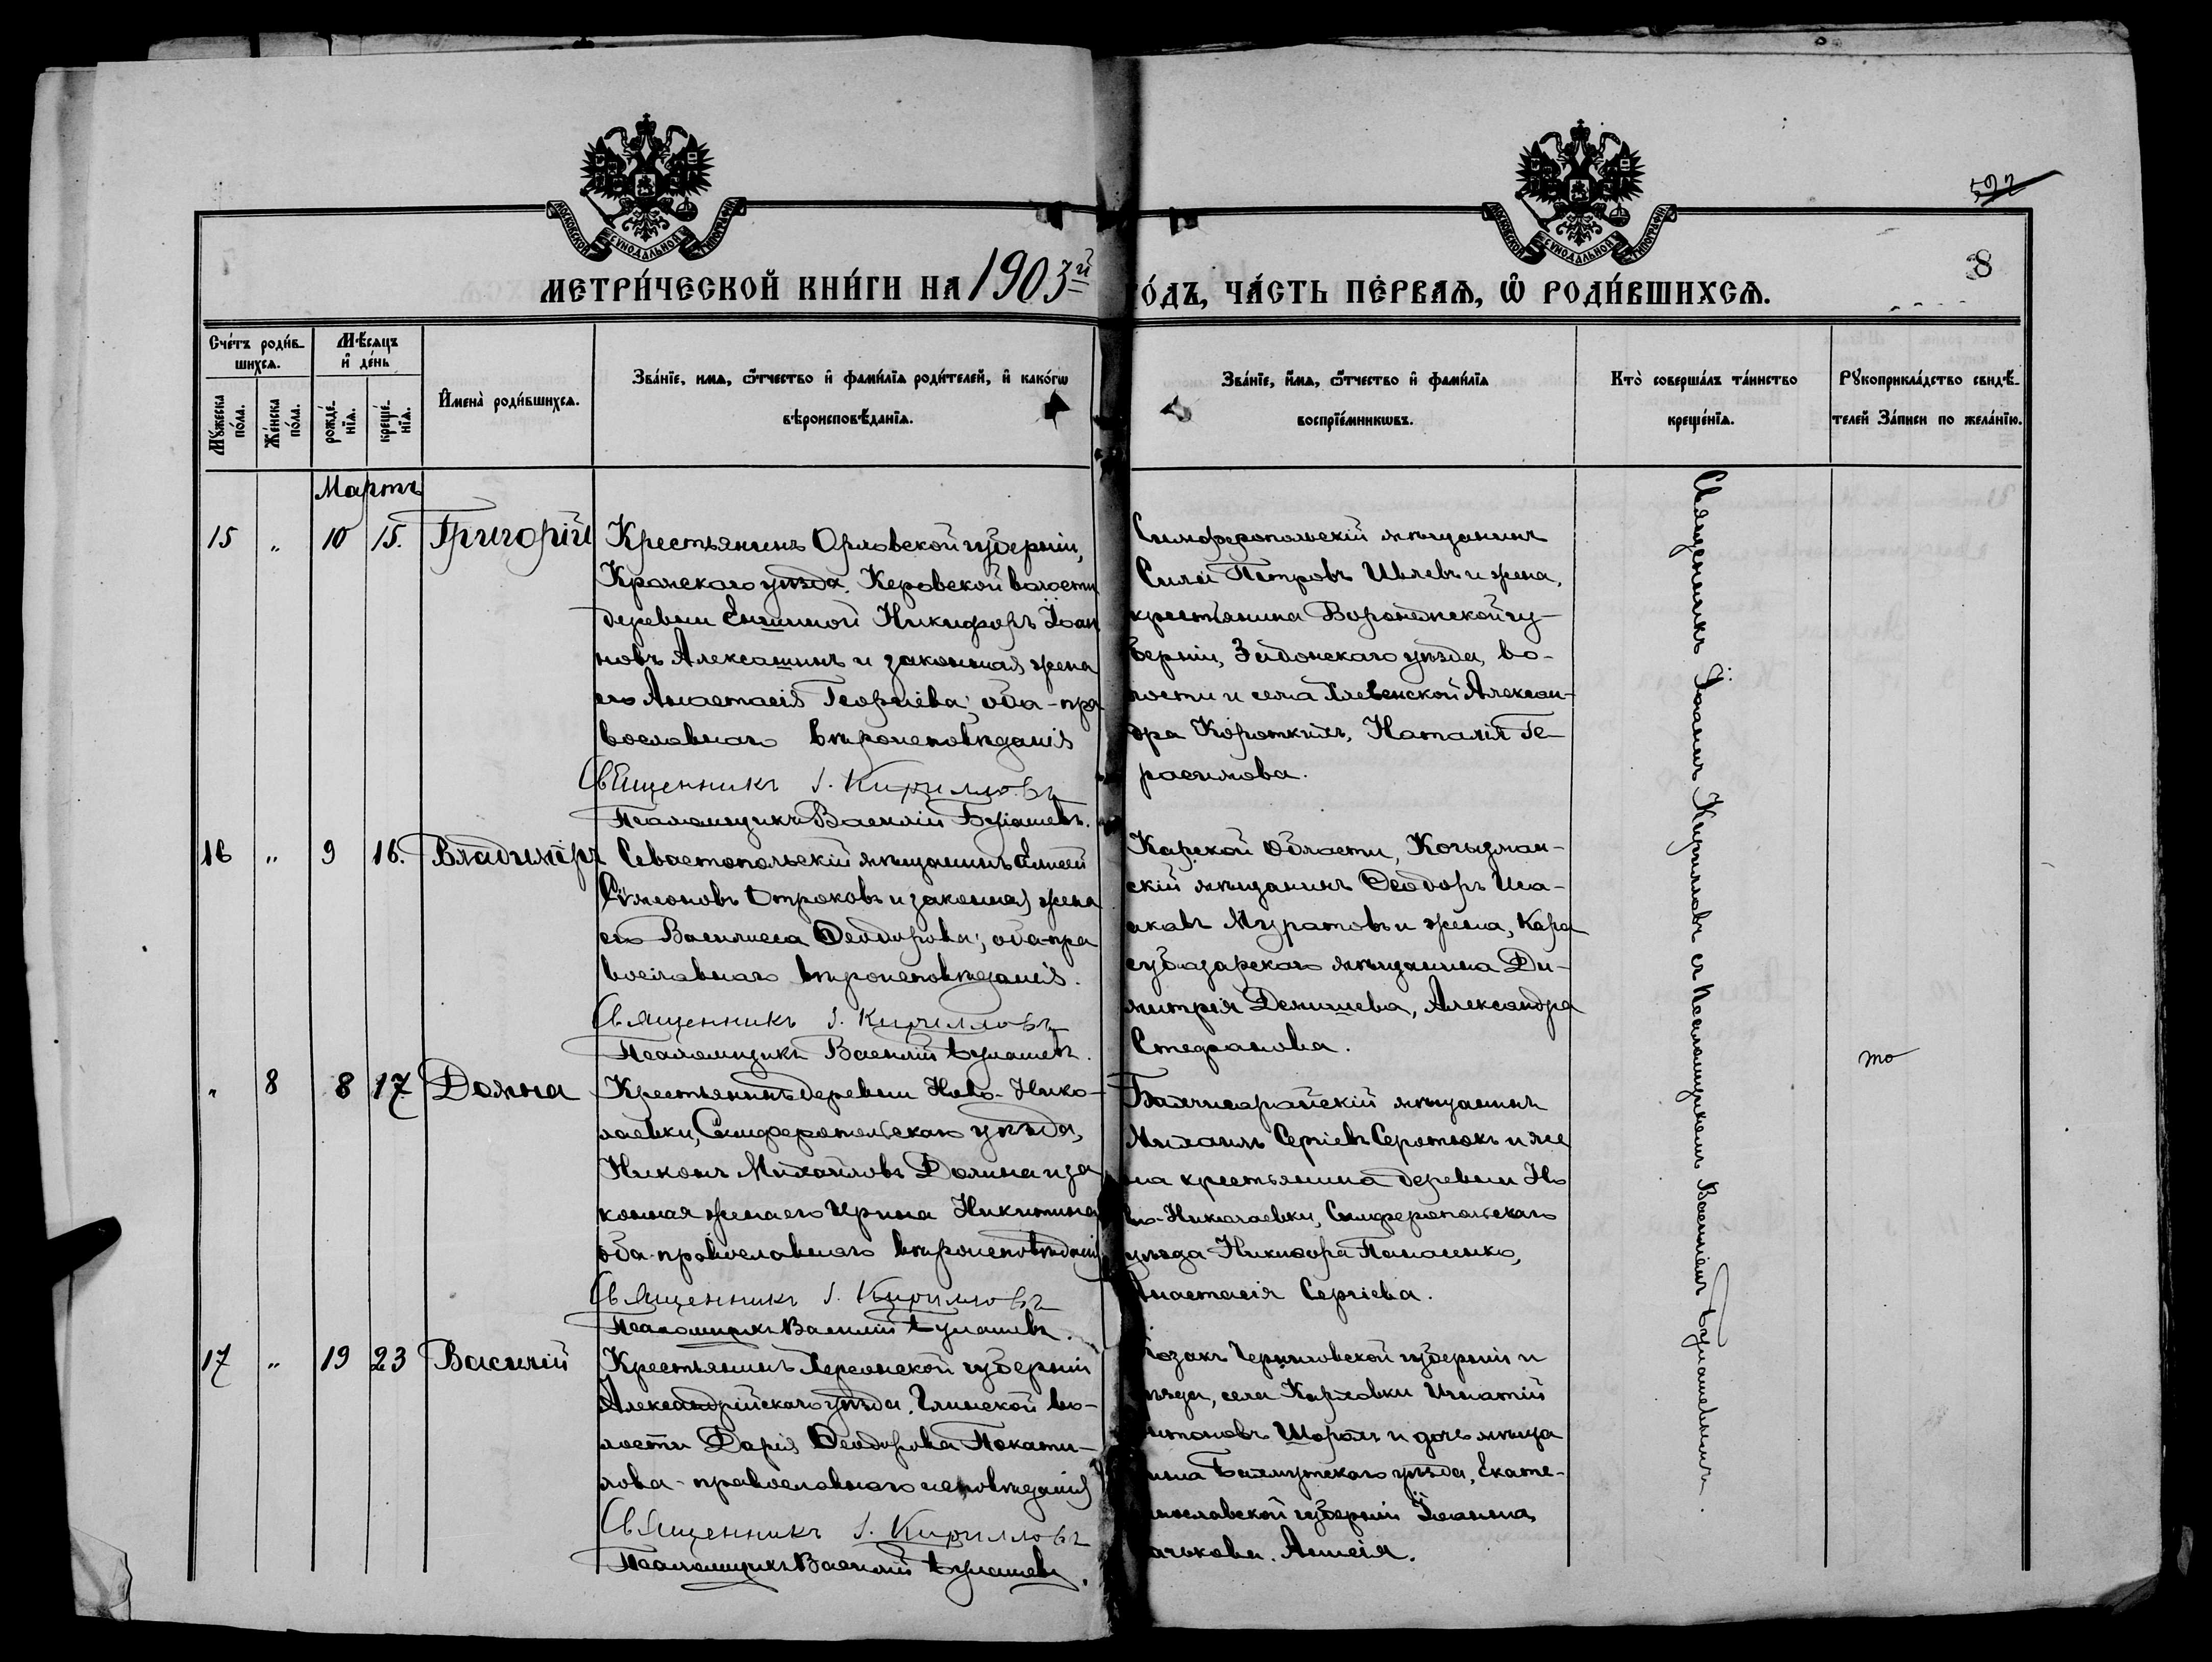 МОСКОВСКОЙ СУНОДАЛЬНОЙ ТИПОГРАФІИ
МОСКОВСКОЙ СУНОДАЛЬНОЙ ТИПОГРАФІИ
592
8
МЕТРИ́ЧЕСКОЙ КНИ́ГИ НА 1903й
О́ДЪ, ЧА́СТЬ ПЕ́РВАѦ, Ѡ҆ РОДИ́ВШИХСѦ.
Сче́тъ роди́в-
шихсѧ.
Мꙋ́жеска по́ла.
Же́нска по́ла.
Мѣ́сѧцъ
и҆ де́нь
рожде́-нїѧ.
креще́-нїѧ.
И҆мена̀ роди́вшихсѧ.
Зва́нїе, имѧ, ѻ҆́тчество и҆ фами́лїѧ роди́телей, и҆ како́гѡ
вѣроисповѣ́данїѧ.
Зва́нїе, и҆́мѧ, ѻ҆́тчество и҆ фами́лїѧ
воспрїе́мникѡвъ.
Кто̀ соверша́лъ та́инство
креще́нїѧ.
Рꙋкоприкла́дство свидѣ́-
телей За́писи по жела́нїю.
Мартъ
15 „ 10 15. Григорій
Крестьянинъ Орловской губерніи,
Кромскаго уѣзда, Керовской волости
деревни Еншиной Никифоръ Іоан
новъ Алексашинъ и законная жена
его Анастасія Георгіева; оба - пра
вославнаго вѣроисповѣданія
Священникъ І. Кирилловъ
Псаломщикъ Василій
Симферопольскій мѣщанинъ
Силой Петровъ Ивлевъ и жена,
крестьянина Воронежской гу-
берніи, Задонскаго уѣзда, во-
лости и села Хлевенской Алексан-
дра Короткихъ, Наталія Ге-
расимова.
16 „ 9 16. Владиміръ
Севастопольскій мѣщанинъ
Сѵмеоновъ Строковъ и законная жена
его Василисса Ѳеодорова; оба пра
вославнаго вѣроисповѣданія.
Священникъ І. Кирилловъ
Псаломщикъ Василій
Карской области, Когызман-
скій мѣщанинъ Ѳеодоръ Иса-
аковъ Муратовъ и жена, Кара
субазарскаго мѣщанина Ди-
митрія Демишева, Александра
Стефанова.
„ 8 8 17 Домна
Крестьянинъ деревни Ново-Нико-
лаевки, Симферопольскаго уѣзда,
Никонъ Михайловъ Долина и за
конная жена его Ирина Никитина
оба православнаго вѣроисповѣданія
Священникъ І. Кирилловъ
Псаломщикъ Василій
Бахчисарайскій мѣщанинъ
Михаилъ Сергіевъ Серотюкъ и же
на крестьянина деревни Но
во-Николаевки, Симферопольскаго
уѣзда Никифора Панасенко,
Анастасія Сергіева.
17 „ 19 23 Василій
Крестьянинъ Херсонской губерніи
Александрійскаго уѣзда, Глинской во-
лости Дарія Ѳеодорова Покати-
лова - православнаго исповѣданія
Священникъ І. Кирилловъ
Псаломщикъ Василій
Козакъ Черниговской губерніи и
уѣзда, села Карховки Игнатій
Шорохъ и дочь мѣща
нина Бахмутскаго уѣзда, Екате-
ринославской губерніи Іоанна
Священникъ Іоаннъ Кирилловъ съ псаломщикомъ Василіемъ
то